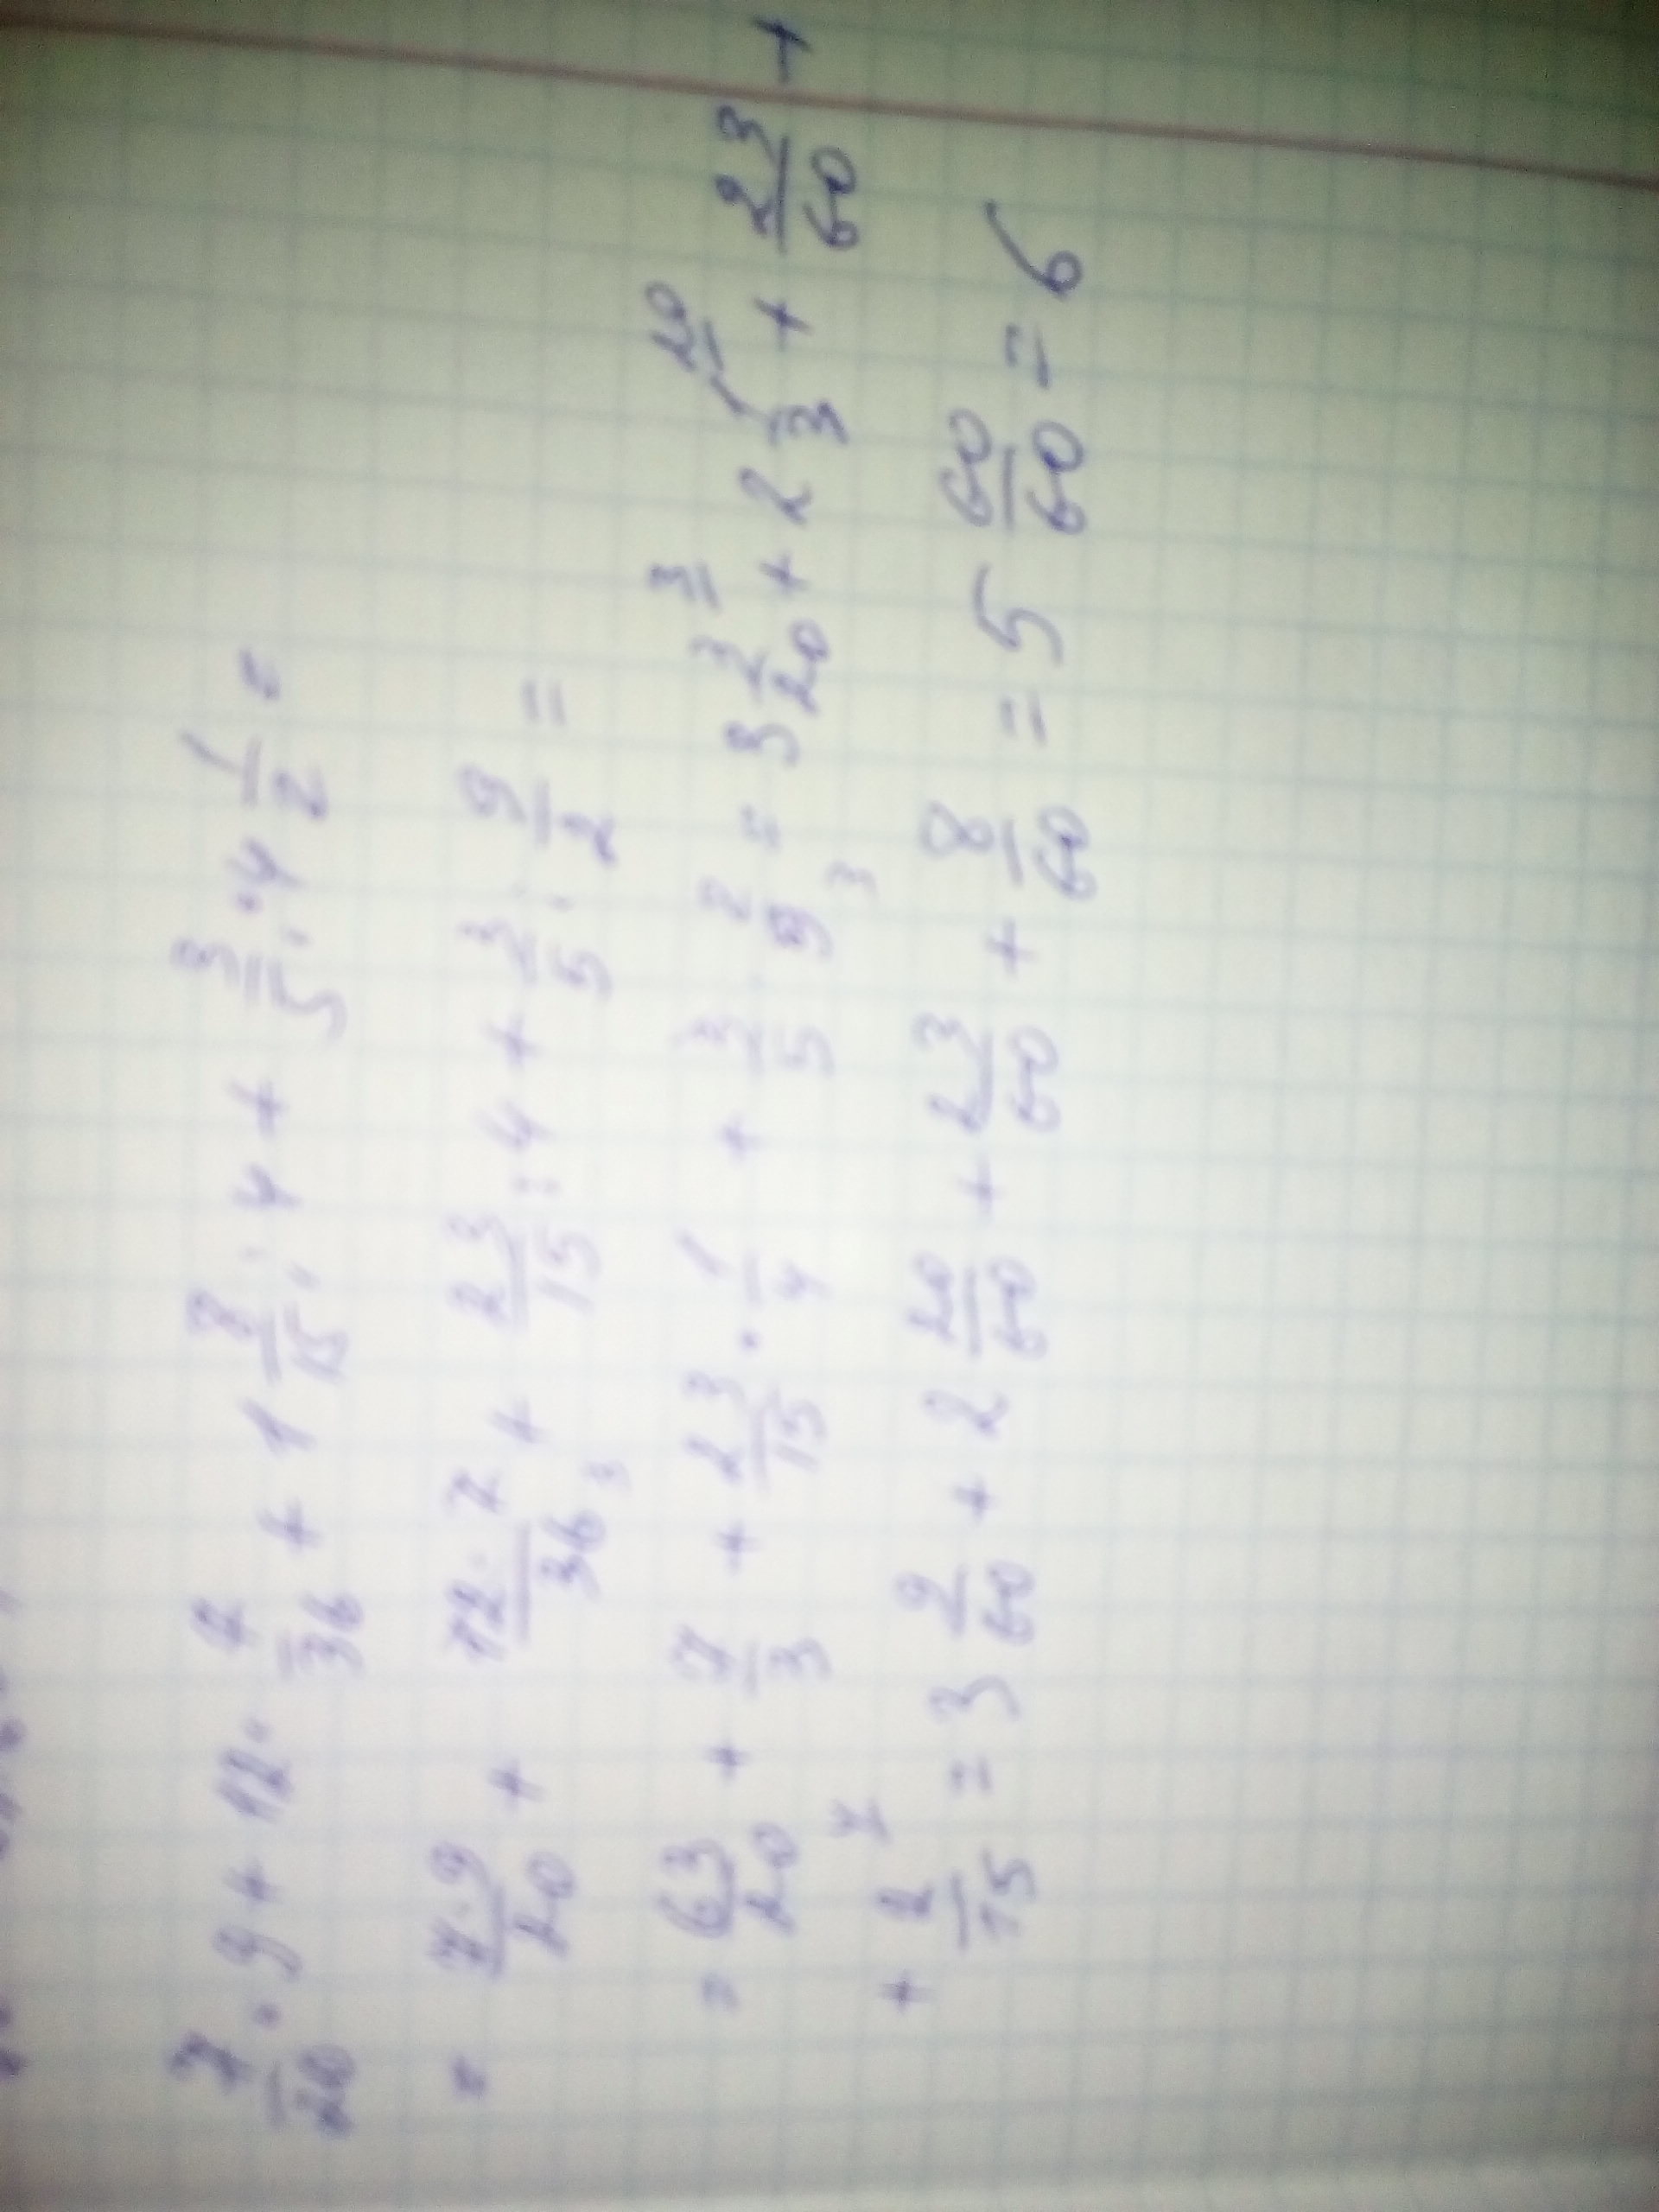 7/20 · 9 + 12 · 7/36 + 1 8/15 : 4 + 3/5 : 4 1/2 =
= 7·9/20 + 12·7/36 3 + 23/15 : 4 + 3/5 : 9/2 =
= 63/20 + 7/3 + 23/15 · 1/4 + 3/5 · 2/9 3 = 3 3/20 3 + 2 1/3 20 + 23/60 +
+ 2/15 4 = 3 9/60 + 2 20/60 + 23/60 + 8/60 = 5 60/60 = 6